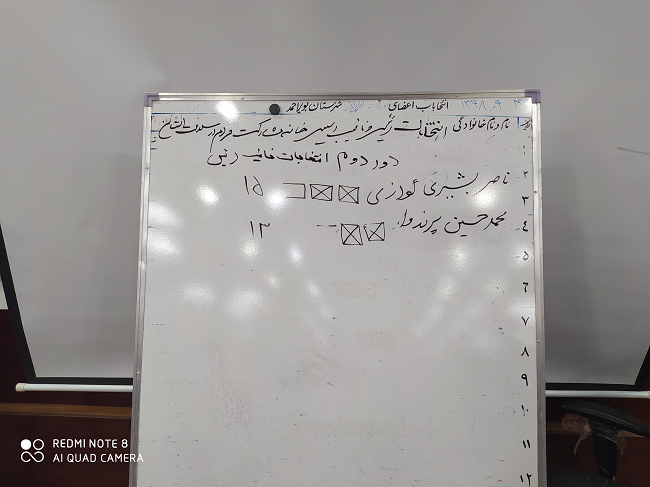 ۱۳۹۸٫۹٫۲ انتخابات اعضای شهرستان بویراحمد
نام و نام خانوادگی انتخابات رئیس و نایب رئیس خانه مشارکت مردم در سلامت استان
دور دوم انتخابات نایب رئیس
ناصر بشیری لوازی ۱۵
محمد حسین پرندوار ۱۳
۱
۲
۳
۴
۵
۶
۷
۸
۹
۱۰
۱۱
۱۲
REDMI NOTE 8
AI QUAD CAMERA